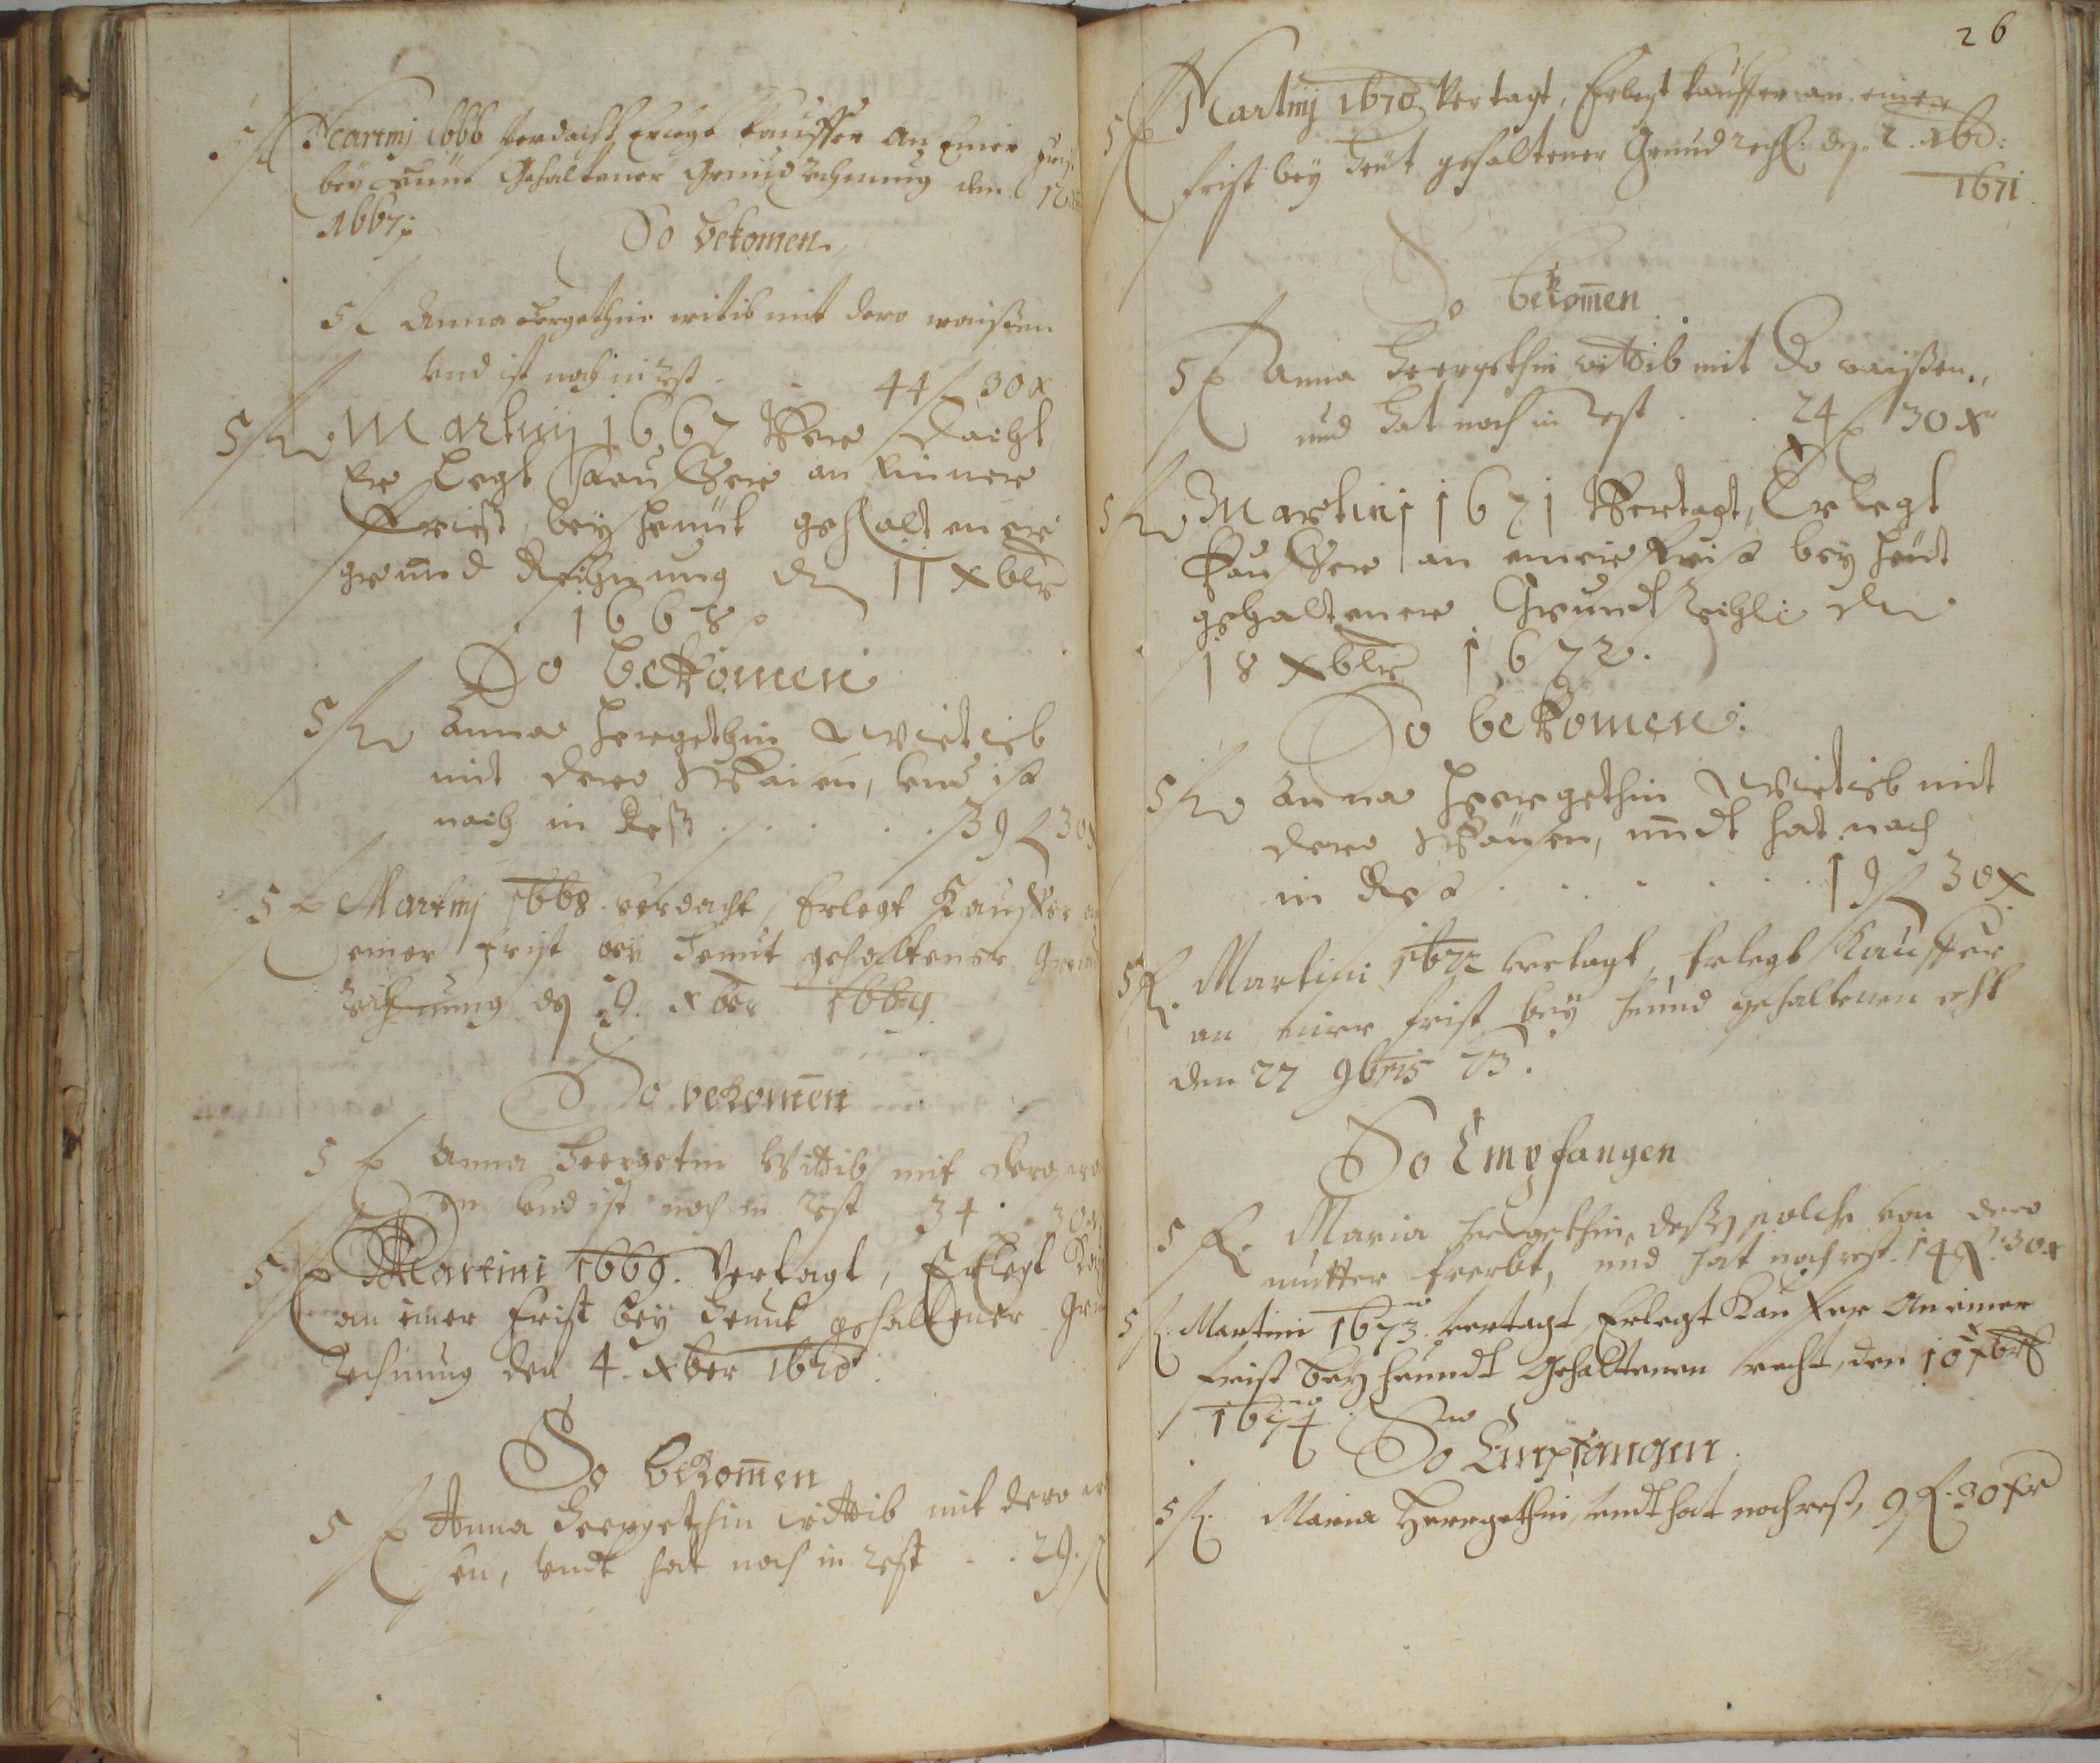 5 fl Martinj 1666 verdacht Erlegt Kauffer An Einer frist
bey heüt Gehaltener Grund Rechnung den 12
1667:
So bekomen.
5 fl Anna Hergethin witib mit dero waißen
und ist noch in rest . . 44 fl 30 x
5 fl Martinj 1667 Ver dacht
Er Legt Kauffer an Einner
Friest, bey heuut gehaltener
grund Rechnung den 11 Xbler
1668
So bekomen
5 fl Anna Hergethin Wietieb
mit dero Waisen, und ist
noch in Rest . . . . . 39 fl 30 x
5 fl Martinj 1668 verdacht, Erlegt Kauffer an
einer frist bey heuut gehaltener Grund
rechnung dn 9. xber 1669.
So bekomen
5 fl Anna Heergetin Wittib mit dero
en und ist noch in rest 34 . 30 x
5 fl Martini 1669. Vertagt, Erlegt
an einer frist bey heuut gehaltener
rechnung den 4. xber 1670.
So bekomen
5 fl Anna Heergethin wittib mit dero
en, undt hat noch in rest . . 29. fl
26
5 fl Martinj 1670 Vertagt, Erlegt kauffer an einer
frist bey heut gehaltener Grund rech: dn. 2. xb:
1671
So bekomen
5 fl Anna Heergethin wittib mit do waißen.,
und hat noch in rest . . 24 fl 30 xr
5 fl Martinj 1671 Vertagt, Erlegt
Kauffer an einer frist bey heüt
gehaltener Grundt Rechl: den
18 Xbler 1672.
So bekomen:
5 fl Anna Heergethin Wietieb mit
dero Waisen, undt hat noch
in Rest . . . . . . 19 fl 30 x
5 fl. Martini 1672 vertagt, Erlegt Kauffer
an einer frist bey heund gehaltenen
den 27 9bris 73.
So Empfangen
5 fl. Maria Hergethin, deß solche von dero
mutter Ererbt, und hat noch rest. 14 fl. 30 x
5 fl. Martini 1673 vertagt, Erlegt Kauffer An einer
frist bey heundt Gehaltenen recht, den 10
1674
So Empfangen.
5 fl. Maria Heergethin, undt hat noch rest, 9 fl. 30 xr